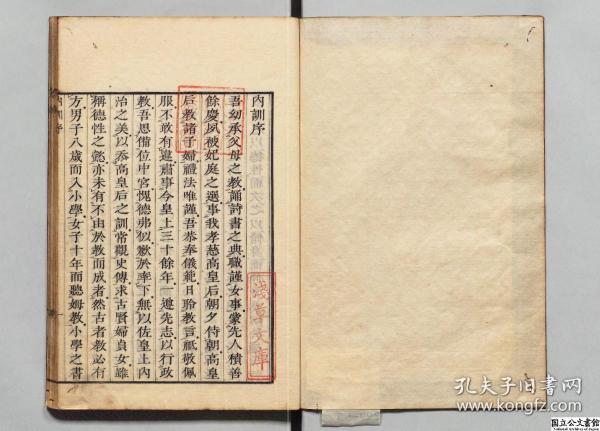 內訓序
吾幼承父母之教誦詩書之典職謹女事蒙先人積善
餘慶夙被妃庭之選事我孝慈高皇后朝夕侍朝高皇
后教諸子婦禮法唯謹吾恭奉儀範日聆教言祗敬佩
服不敢有違肅事今皇上三十餘年一遵先志以行政
教吾思備位中宮愧德弗似歉於率下無以佐皇上內
治之美以忝高皇后之訓常觀史傳求古賢婦貞女雖
稱德性之懿亦未有不由於教而成者然古者教必有
方男子八歲而入小學女子十年而聽姆教小學之書
內訓序
淺草文庫
孔夫子旧书网
www.kongfz.com
国立公文書館
National Archives of Japan